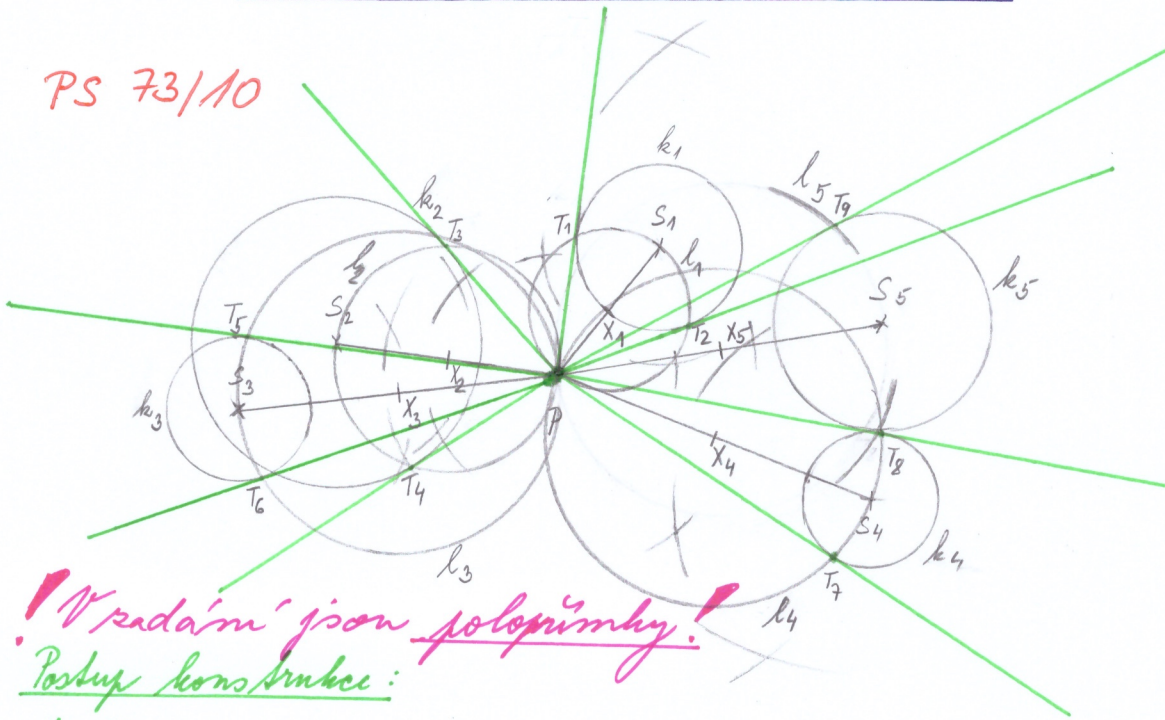 PS 73/10
k₁
l₅
T₉
k₂
T₃
T₁
S₁
l₁
k₅
l₂
S₂
T₅
S₅
X₁
T₂
X₅
S₃
X₂
k₃
X₃
P
X₄
T₈
T₆
T₄
S₄
k₄
T₇
l₃
l₄
! V zadání jsou polopřímky!
Postup konstrukce: